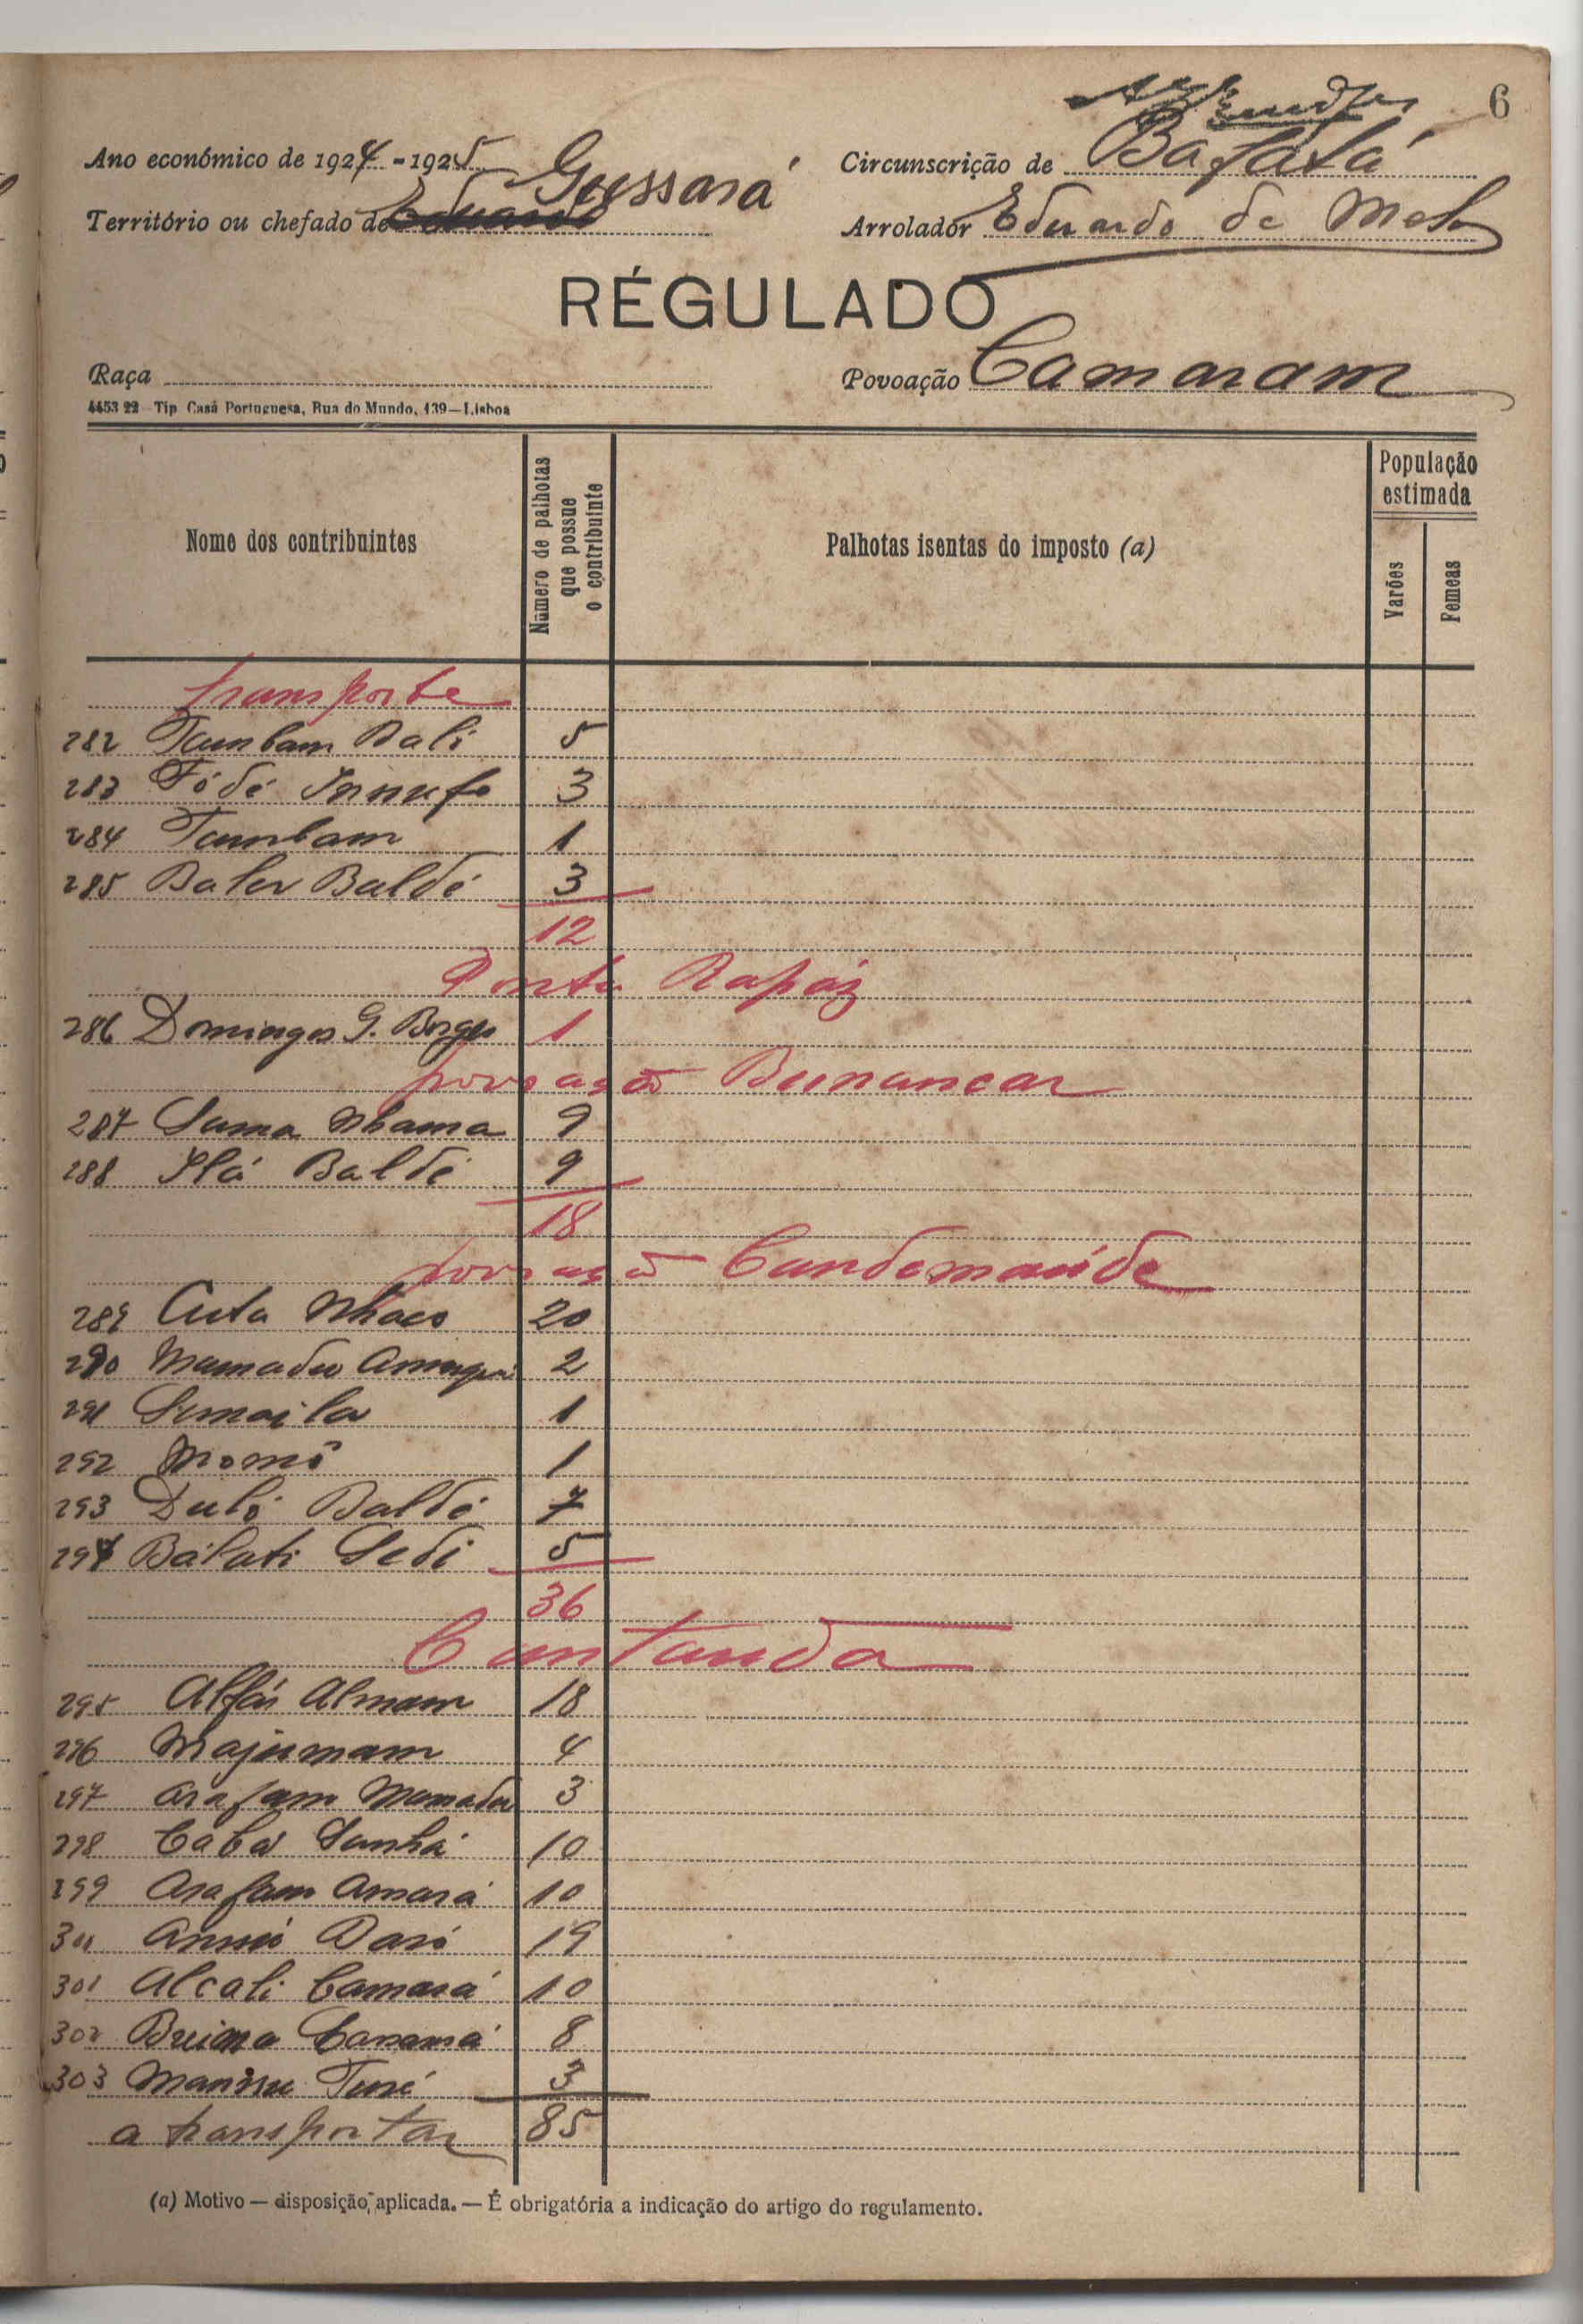 6
Ano económico de 1924-1925 Gussará Circunscrição de Bafatá
Território ou chefado de Eduardo Arrolador Eduardo de Melo
RÉGULADO
Raça Povoação Camaram
4453 22 Tip Casa Portuguesa, Rua do Mundo, 139—Lisboa
Nome dos contribuintes
Número de palhotas que possue o contribuinte
Palhotas isentas do imposto (a)
População estimada
Varões
Femeas
transporte
282 Tumbam Dali 5
283 Fódé 3
284 Tumbam 1
285 Baldé 3
12
Ponta Rapáz
286 Domingos G. Borges 1
povoação Bunancar
287 Suma Nhama 9
288 Ilá Baldé 9
18
povoação Candemaúde
289 Cuta 20
290 Mamadu 2
291 Sumaila 1
292 Momô 1
293 Duló Baldé 7
294 Bálati Sedi 5
36
Cantauda
295 Alfá Almam 18
296 Majumam 4
297 Arafam Mamadu 3
298 Cabá Sanhá 10
299 Arafam Amará 10
300 19
301 Alcali Camará 10
302 Braima 8
303 Turé 3
a transportar 85
(a) Motivo — disposição aplicada. — É obrigatória a indicação do artigo do regulamento.